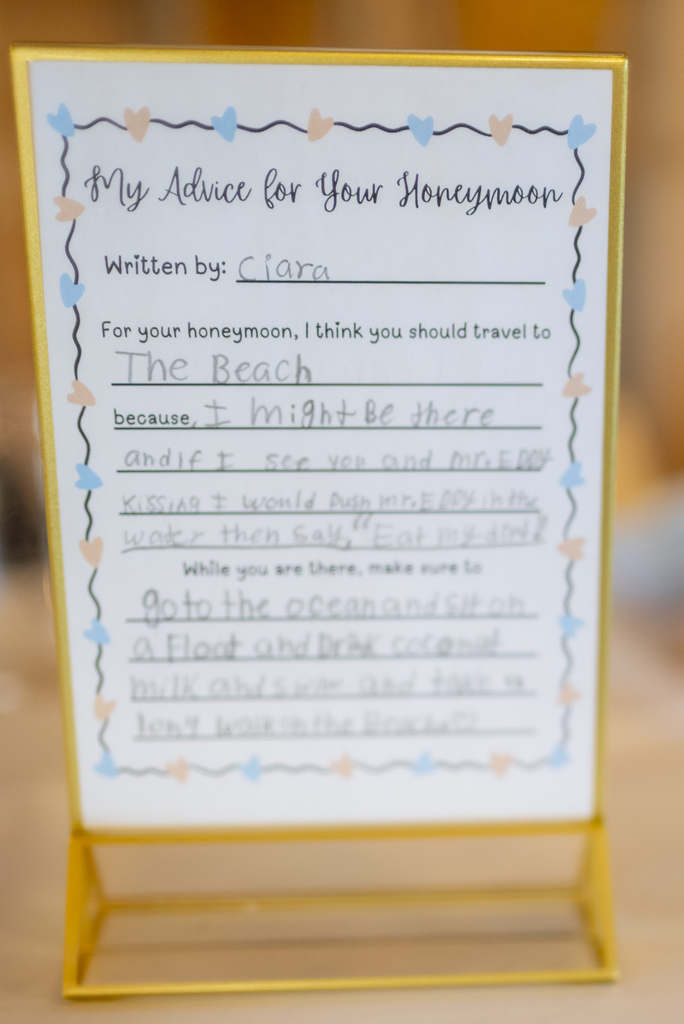 My Advice for Your Honeymoon
Written by: Ciara
For your honeymoon, I think you should travel to
The Beach
because, I might Be there
and if I see you and mr. EDDY
Kissing I would push mr. EDDY in the
water then say, "Eat my dirt!"
While you are there, make sure to
go to the ocean and sit on
a Float and Drink coconut
milk and swim and take a
long walk on the Beach